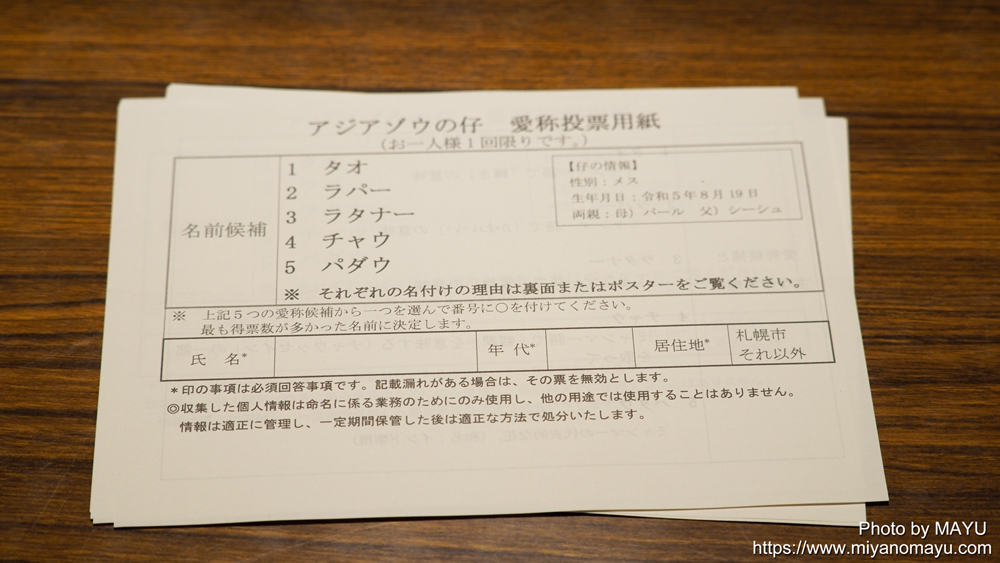 アジアゾウの仔　愛称投票用紙
（お一人様１回限りです。）
名前候補
1　タオ
2　ラパー
3　ラタナー
4　チャウ
5　パダウ
※　それぞれの名付けの理由は裏面またはポスターをご覧ください。
【仔の情報】
性別：メス
生年月日：令和５年８月１９日
両親：母）パール　父）シーシュ
※　上記５つの愛称候補から一つを選んで番号に〇を付けてください。
最も得票数が多かった名前に決定します。
氏　名*　年　代*　居住地*　札幌市
それ以外
＊印の事項は必須回答事項です。記載漏れがある場合は、その票を無効とします。
◎収集した個人情報は命名に係る業務のためにのみ使用し、他の用途では使用することはありません。
情報は適正に管理し、一定期間保管した後は適正な方法で処分いたします。
Photo by MAYU
https://www.miyanomayu.com